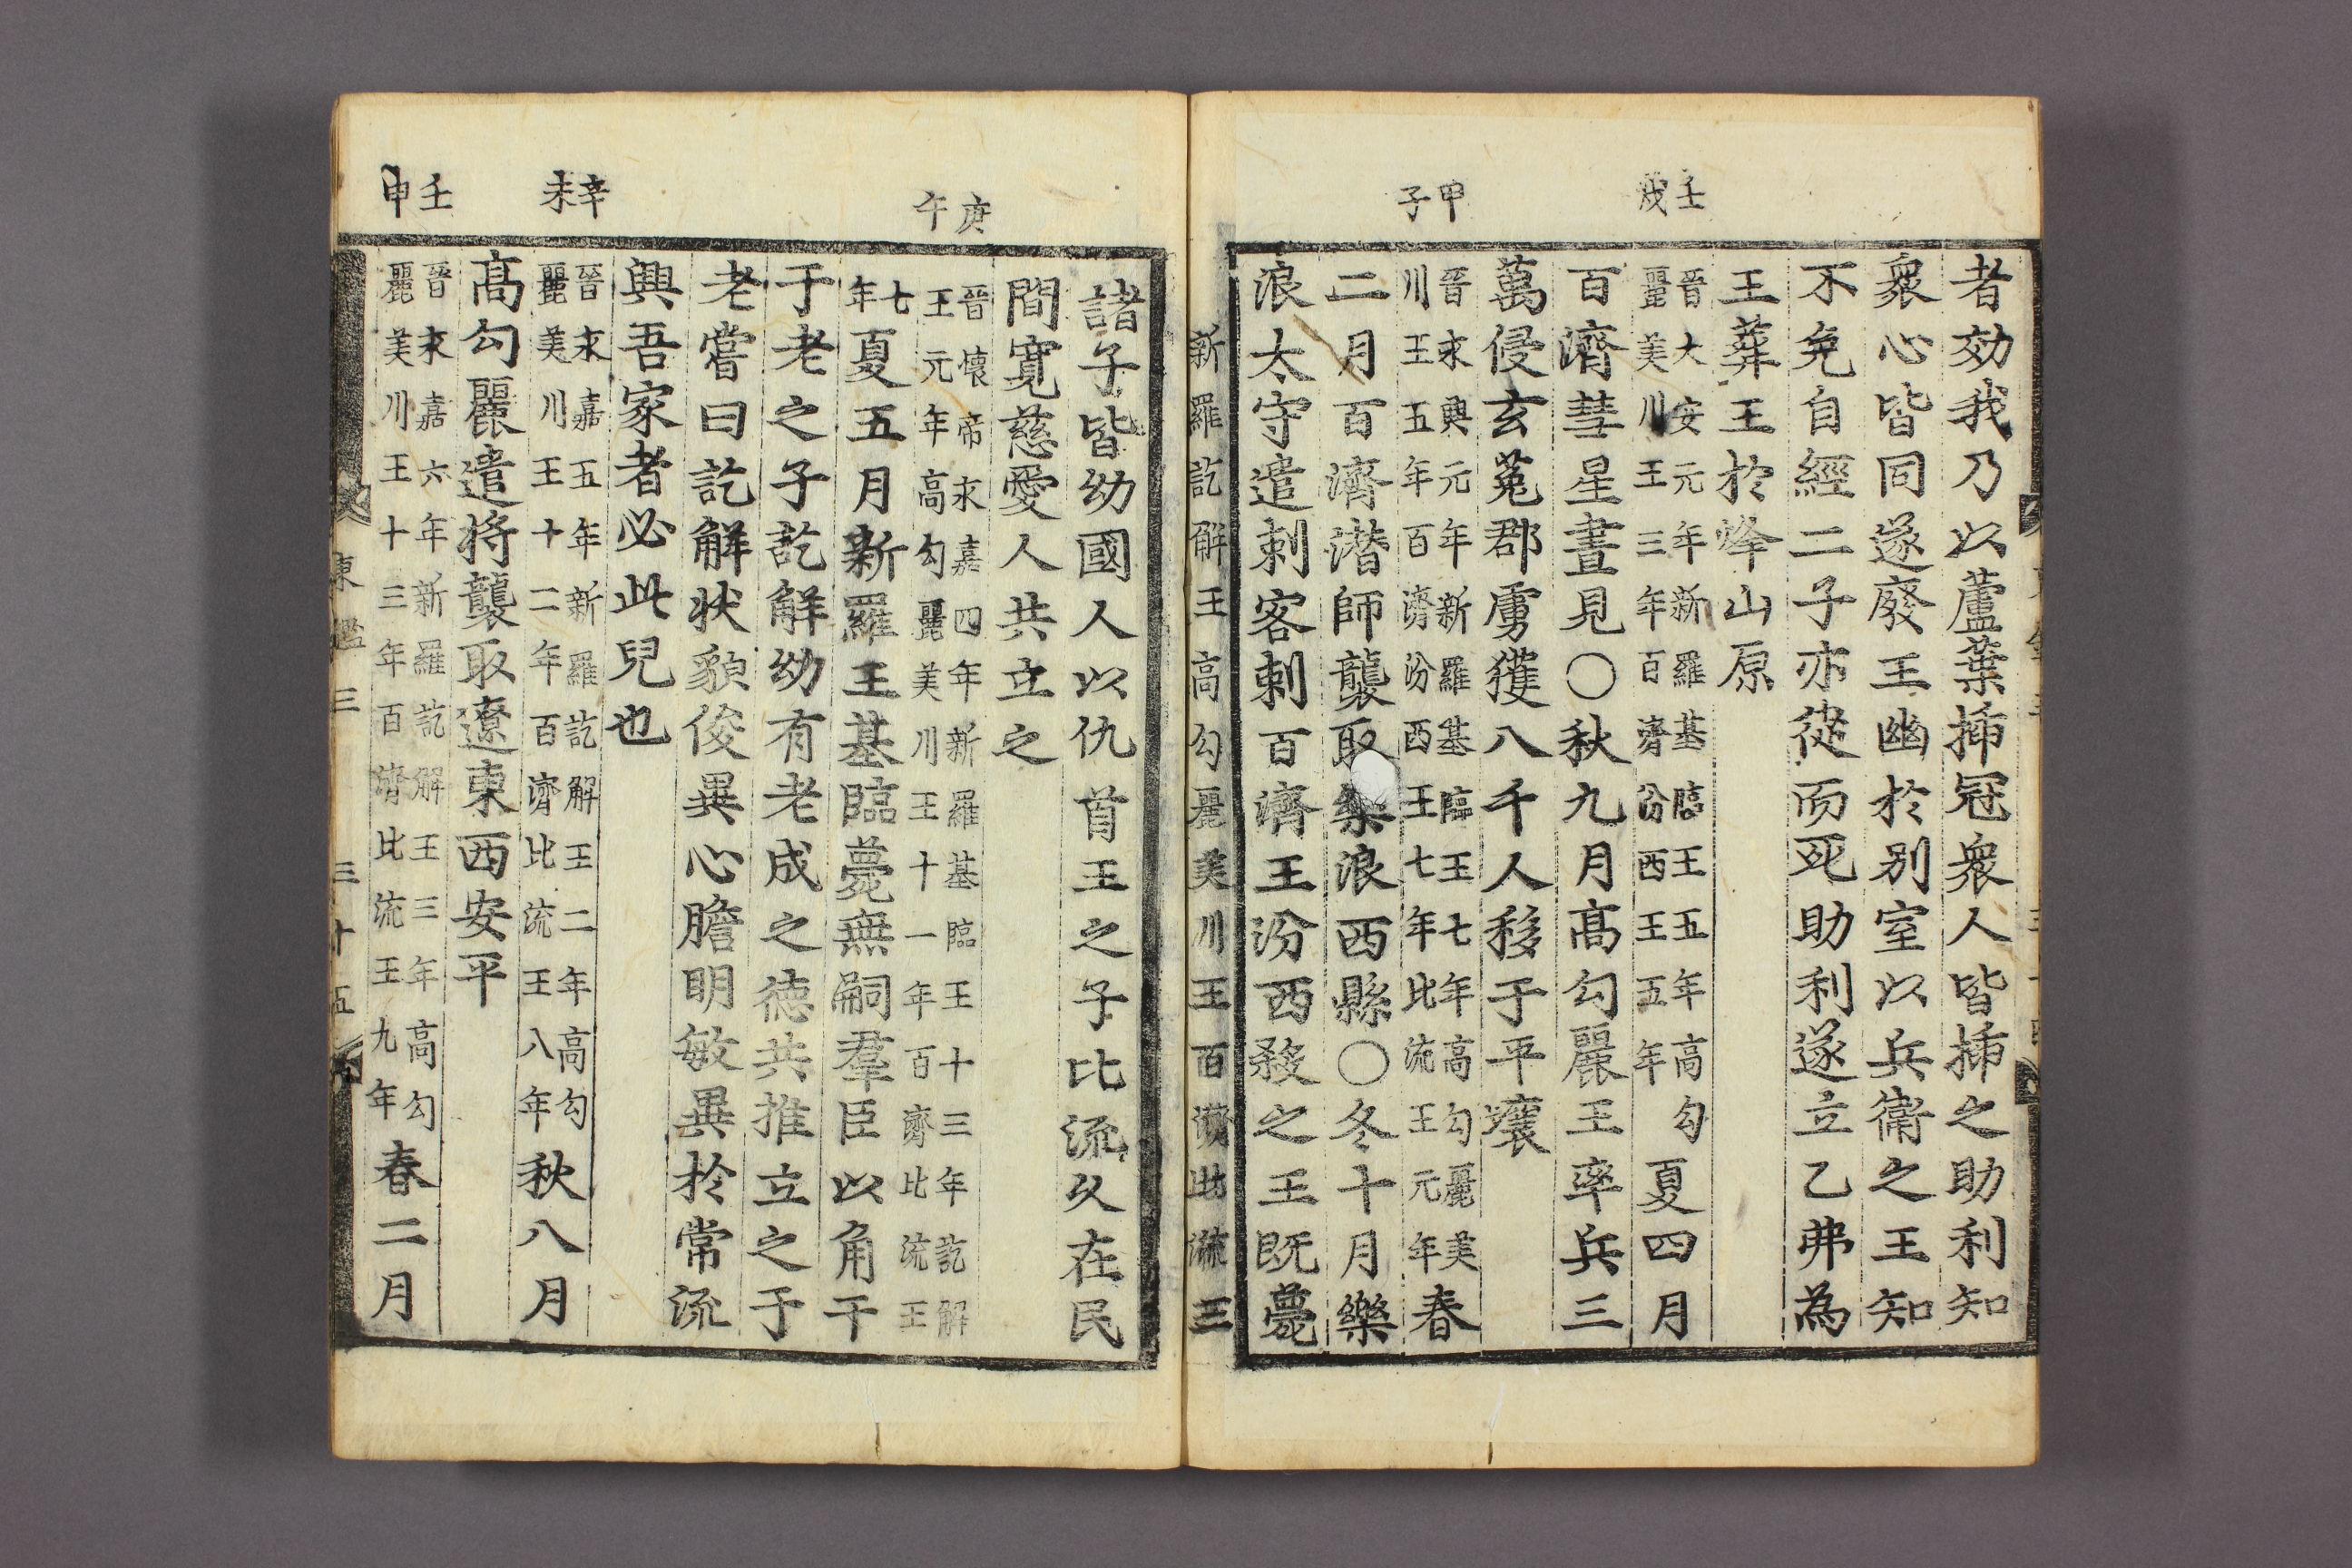 者効我乃以蘆葉揷冠衆人皆揷之助利知
衆心皆同遂廢王幽於别室以兵衛之王知
不免自經二子亦從而死助利遂立乙弗為
王葬王於烽山原
壬戌
晉大安元年新羅基臨王五年高勾
麗美川王三年百濟汾西王五年
夏四月
百濟彗星晝見○秋九月高勾麗王率兵三
萬侵玄菟郡虜獲八千人移于平壤
甲子
晉永興元年新羅基臨王七年高勾麗美
川王五年百濟汾西王七年比流王元年
春
二月百濟潜師襲取樂浪西縣○冬十月樂
浪太守遣刺客刺百濟王汾西殺之王旣薨
新羅訖解王高勾麗美川王百濟比流王
諸子皆幼國人以仇首王之子比流久在民
間寬慈愛人共立之
庚午
晉懷帝永嘉四年新羅基臨王十三年訖解
王元年高勾麗美川王十一年百濟比流王
七年
夏五月新羅王基臨薨無嗣羣臣以角干
于老之子訖解幼有老成之德共推立之于
老嘗曰訖解狀貌俊異心膽明敏異於常流
興吾家者必此兒也
辛未
晉永嘉五年新羅訖解王二年高勾
麗美川王十二年百濟比流王八年
秋八月
高勾麗遣將襲取遼東西安平
壬申
晉永嘉六年新羅訖解王三年高勾
麗美川王十三年百濟比流王九年
春二月
東鑑三 三十五